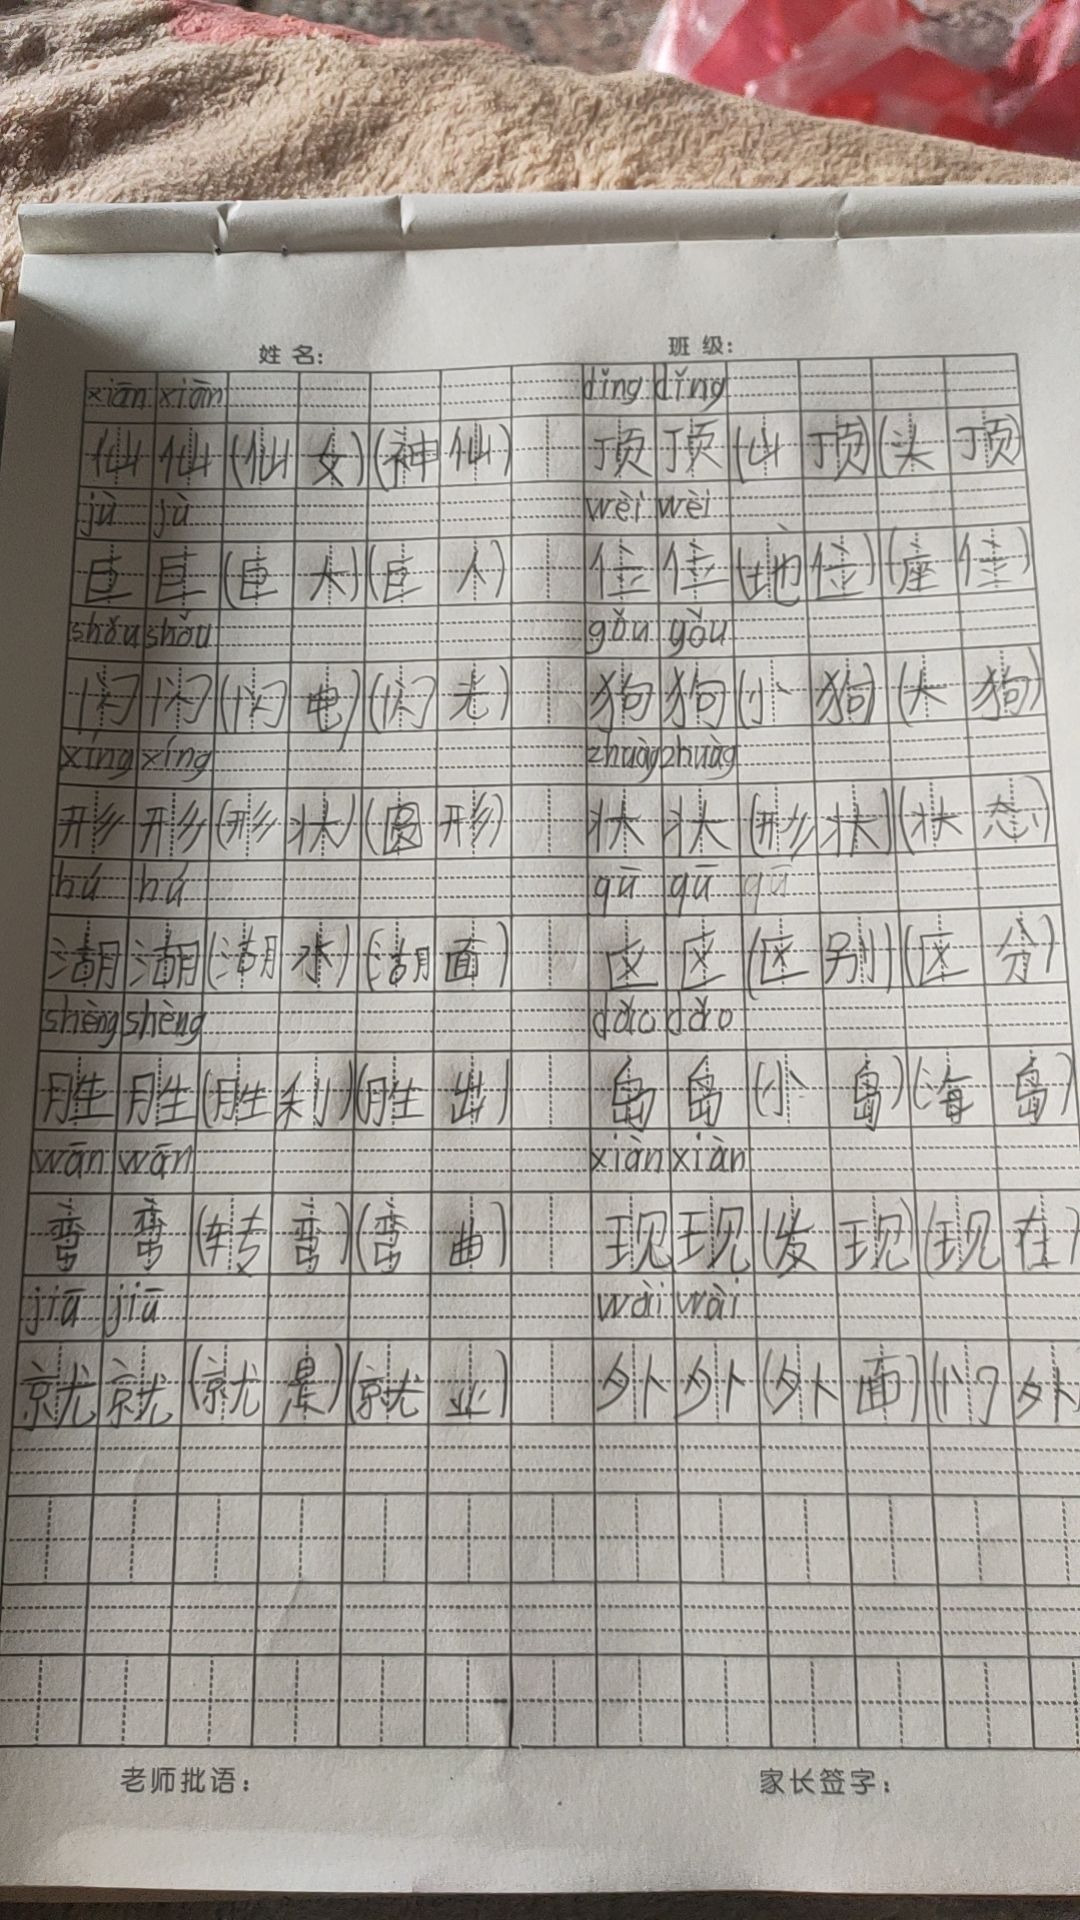 姓名: 班级:
xiān xiān dǐng dǐng
仙 仙 (仙 女) (神 仙) 顶 顶 (山 顶) (头 顶)
jù jù wèi wèi
巨 巨 (巨 大) (巨 人) 位 位 (地 位) (座 位)
shǎu shǎu gǒu gǒu
闪 闪 (闪 电) (闪 光) 狗 狗 (小 狗) (大 狗)
xíng xíng zhuàg zhuàg
形 形 (形 状) (圆 形) 状 状 (形 状) (状 态)
hú hú qū qū qū
湖 湖 (湖 水) (湖 面) 区 区 (区 别) (区 分)
shèng shèng dǎo dǎo
胜 胜 (胜 利) (胜 出) 岛 岛 (小 岛) (海 岛)
wān wān xiàn xiàn
弯 弯 (转 弯) (弯 曲) 现 现 (发 现) (现 在)
jiū jiū wài wài
就 就 (就 是) (就 业) 外 外 (外 面) (门 外
老师批语: 家长签字: